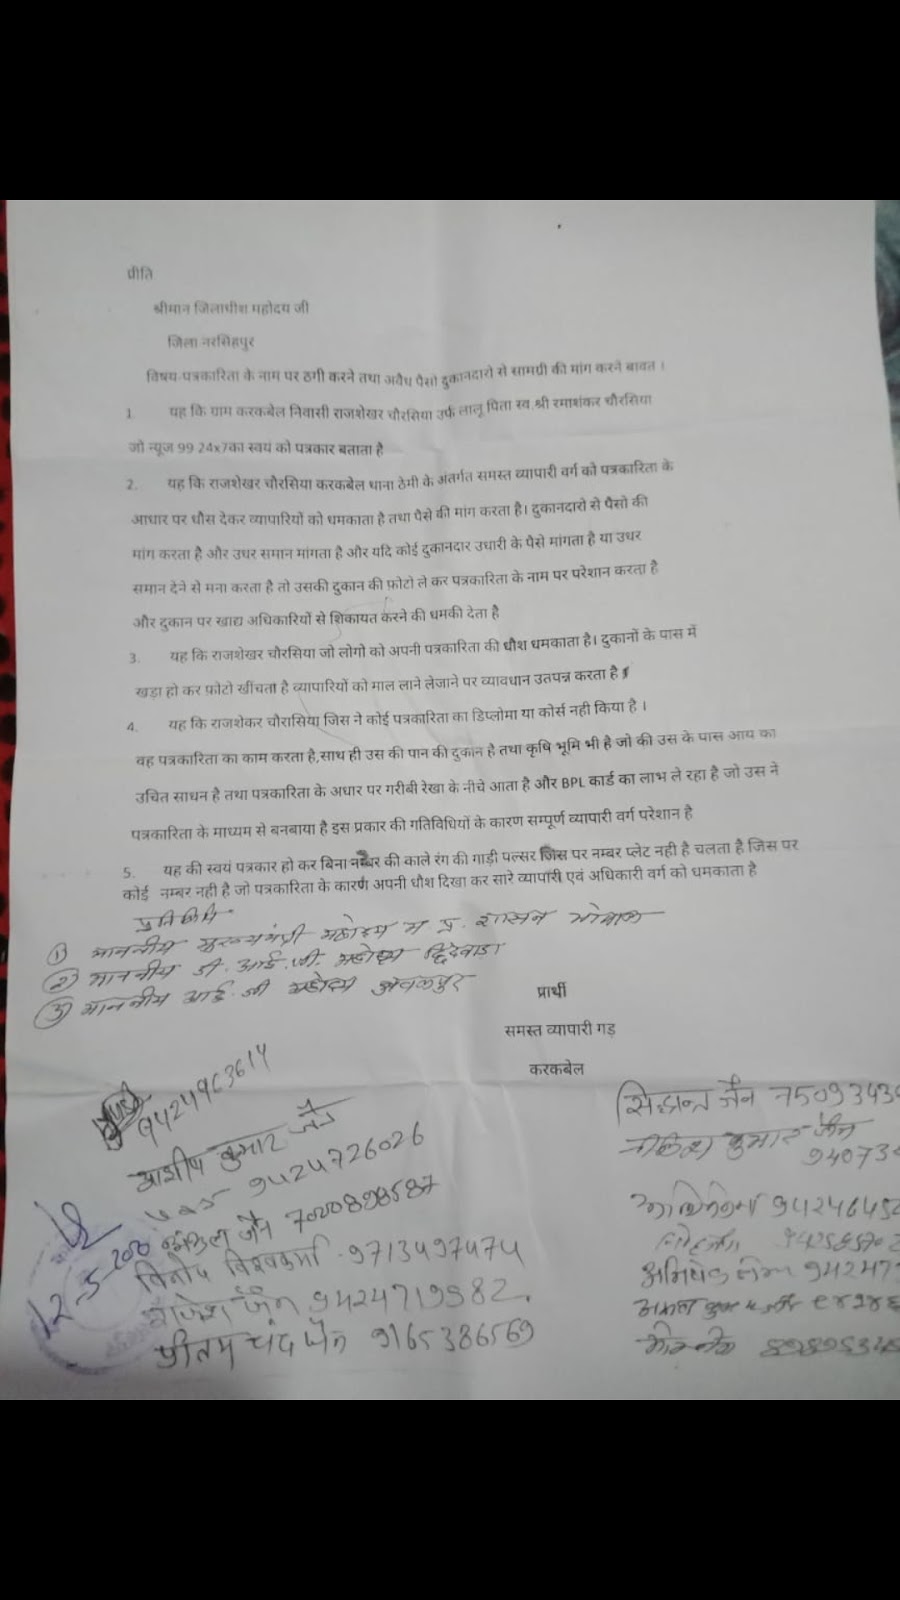 प्रीति
श्रीमान जिलाधीश महोदय जी
जिला नरसिहपुर
विषय-पत्रकारिता के नाम पर ठगी करने तथा अवैध पैसो दुकानदारो से सामग्री की मांग करने बावत ।
1. यह कि ग्राम करकबेल निवासी राजशेखर चौरसिया उर्फ लालू पिता स्व.श्री रमाशंकर चौरसिया
जो न्यूज 99 24x7का स्वयं को पत्रकार बताता है
2. यह कि राजशेखर चौरसिया करकबेल थाना ठेमी के अंतर्गत समस्त व्यापारी वर्ग को पत्रकारिता के
आधार पर धौस देकर व्यापारियों को धमकाता है तथा पैसे की मांग करता है। दुकानदारो से पैसो की
मांग करता है और उधर समान मांगता है और यदि कोई दुकानदार उधारी के पैसे मांगता है या उधर
समान देने से मना करता है तो उसकी दुकान की फ़ोटो ले कर पत्रकारिता के नाम पर परेशान करता है
और दुकान पर खाद्य अधिकारियों से शिकायत करने की धमकी देता है
3. यह कि राजशेखर चौरसिया जो लोगो को अपनी पत्रकारिता की धौश धमकाता है। दुकानों के पास में
खड़ा हो कर फ़ोटो खींचता है व्यापारियों को माल लाने लेजाने पर व्यावधान उतपन्न करता है।
4. यह कि राजशेकर चौरासिया जिस ने कोई पत्रकारिता का डिप्लोमा या कोर्स नही किया है ।
वह पत्रकारिता का काम करता है,साथ ही उस की पान की दुकान है तथा कृषि भूमि भी है जो की उस के पास आय का
उचित साधन है तथा पत्रकारिता के अधार पर गरीबी रेखा के नीचे आता है और BPL कार्ड का लाभ ले रहा है जो उस ने
पत्रकारिता के माध्यम से बनबाया है इस प्रकार की गतिविधियों के कारण सम्पूर्ण व्यापारी वर्ग परेशान है
5. यह की स्वयं पत्रकार हो कर बिना नम्बर की काले रंग की गाड़ी पल्सर जिस पर नम्बर प्लेट नही है चलता है जिस पर
कोई नम्बर नही है जो पत्रकारिता के कारण अपनी धौश दिखा कर सारे व्यापारी एवं अधिकारी वर्ग को धमकाता है
प्रतिलिपि
① माननीय मुख्यमंत्री महोदय म प्र. शासन भोपाल
② माननीय डी. आई. जी. महोदय छिंदवाडा
③ माननीय आई. जी महोदय जबलपुर
प्रार्थी
समस्त व्यापारी गड़
करकबेल
9424963614
आशीष कुमार जैन
9424726026
जैन 7020898587
12-5-2020
विनोद विश्वकर्मा 9713497474
राजेश जैन 9424719982.
प्रीतम चंद जैन 9165386569
सिद्धान्त जैन 7509343
कुमार जैन
94073
942464
अभिषेक 94247